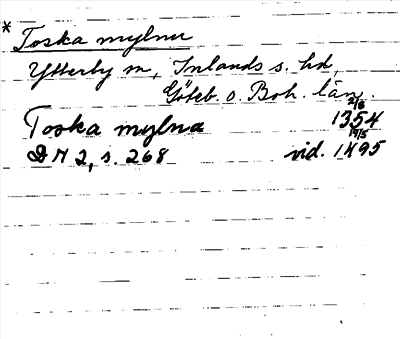 * Toska mylnu
Ytterby sn, Inlands s. hd,
Göteb. o. Boh. län.
Toska mylna 2/8 1354
DN 2, s. 268 vid. 19/5 1495